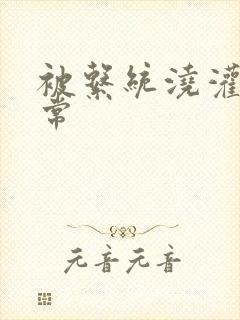 被繫統澆灌
常
元音元音